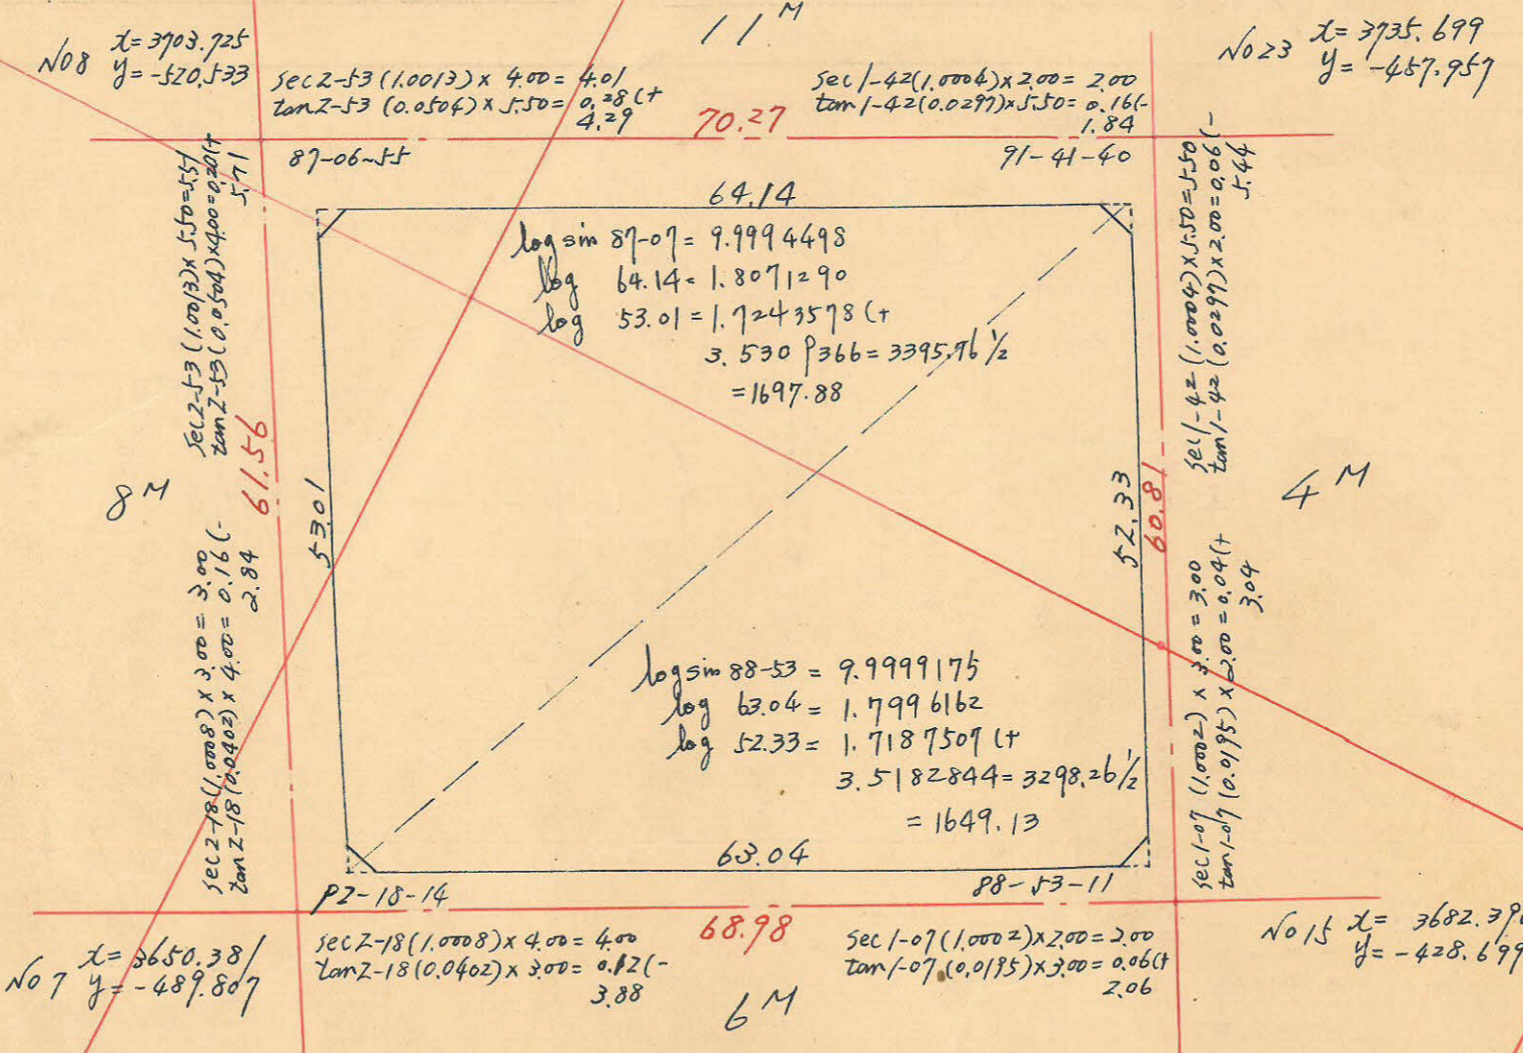 11 M
No8 x= 3703.725
y= -520.533
sec2-53 (1.0013) x 4.00= 4.01
tan2-53 (0.0504) x 5.50= 0.28 (+
4.29
70.27
sec1-42(1.0004)x2.00= 2.00
tan1-42(0.0297)x5.50= 0.16(-
1.84
No23 x= 3735.699
y= -457.957
87-06-55
91-41-40
64.14
log sin 87-07= 9.9994498
log 64.14= 1.8071290
log 53.01=1.7243578 (+
3.5309366=3395.76 1/2
=1697.88
sec2-53 (1.0013)x 5.50=5.51
tan2-53 (0.0504)x4.00=0.20(+
5.71
61.56
8 M
53.01
sec2-18(1.0008) x 3.00= 3.00
tan2-18(0.0402) x 4.00= 0.16 (-
2.84
sec1-42 (1.0004)x5.50=5.50
tan1-42 (0.0297)x2.00=0.06(-
5.44
60.81
52.33
4 M
sec1-07 (1.0002) x 3.00=3.00
tan1-07 (0.0195) x 2.00=0.04(+
3.04
log sin 88-53 = 9.9999175
log 63.04 = 1.7996162
log 52.33= 1.7187507 (+
3.5182844=3298.26 1/2
= 1649.13
63.04
92-18-14
88-53-11
68.98
No7 x= 3650.381
y= -489.807
sec2-18(1.0008)x 4.00= 4.00
tan2-18(0.0402)x 3.00= 0.12(-
3.88
6 M
sec1-07(1.0002)x2.00=2.00
tan1-07(0.0195)x3.00=0.06(+
2.06
No15 x= 3682.39
y= -428.699